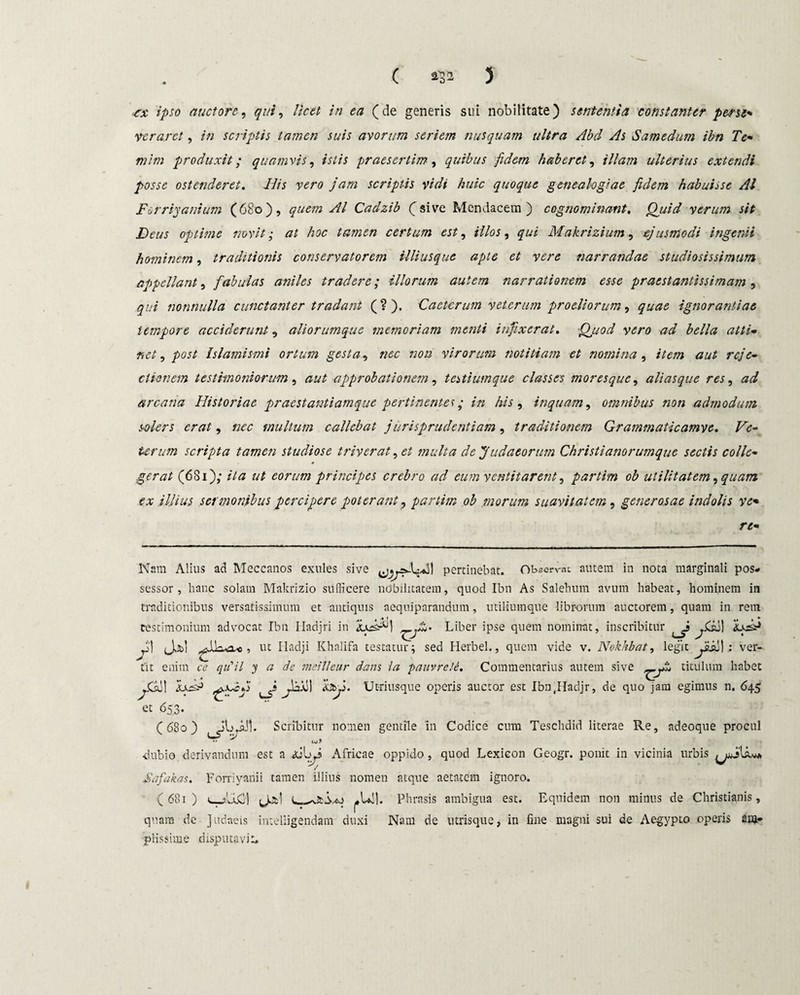 ( 232 )
ex ipso auctore, qui, licet in ea (de generis sui nobilitate) sententia constanter perse-
veraret, in scriptis tamen suis avorum seriem nusquam ultra Abd As Samedum ibn Te-
mim produxit; quamvis, istis praesertim, quibus fidem haberet, illam ulterius extendi
posse ostenderet. His vero jam scriptis vidi huic quoque genealogiae fidem habuisse Al
Forriyanium (680), quem Al Cadzib (sive Mendacem) cognominant. Quid verum sit
Deus optime novit; at hoc tamen certum est, illos, qui Makrizium, ejusmodi ingenii
hominem, traditionis conservatorem illiusque apte et vere narrandae studiosissimum
appellant, fabulas aniles tradere; illorum autem narrationem esse praestantissimam,
qui nonnulla cunctanter tradant (?). Caeterum veterum proeliorum, quae ignorantiae
tempore acciderunt, aliorumque memoriam menti infixerat. Quod vero ad bella atti-
net, post Islamismi ortum gesta, nec non virorum notitiam et nomina, item aut reje-
ctionem testimoniorum, aut approbationem, testiumque classes moresque, aliasque res, ad
arcana Historiae praestantiamque pertinentes; in his, inquam, omnibus non admodum
solers erat, nec multum callebat jurisprudentiam, traditionem Grammaticamve. Ve-
terum scripta tamen studiose triverat, et multa de Judaeorum Christianorumque sectis colle-
gerat (681); ita ut eorum principes crebro ad eum ventitarent, partim ob utilitatem, quam
ex illius sermonibus percipere poterant, partim ob morum suavitatem, generosae indolis ve-
re-
Nam Alius ad Meccanos exules sive المهاجرين pertinebat. Observat autem in nota marginali pos-
sessor, hanc solam Makrizio sufficere nobilitatem, quod Ibn As Salehum avum habeat, hominem in
traditionibus versatissimum et antiquis aequiparandum, utiliumque librorum auctorem, quam in rem
testimonium advocat Ibn Hadjri in شرح النخبة. Liber ipse quem nominat, inscribitur نخبة الفكر في
مصطلح اهل الاثر, ut Hadji Khalifa testatur; sed Herbel., quem vide v. Nokhbat, legit الفقر; ver-
tit enim ce qu'il y a de meilleur dans la pauvreté. Commentarius autem sive شرح titulum habet
نزهة النظر في توضيح نخبة الفكر. Utriusque operis auctor est Ibn Hadjr, de quo jam egimus n. 645
et 653.
(680) الفرياني. Scribitur nomen gentile in Codice cum Teschdid literae Re, adeoque procul
dubio derivandum est a فريانة Africae oppido, quod Lexicon Geogr. ponit in vicinia urbis سفاقس
Safakas. Forriyanii tamen illius nomen atque aetatem ignoro.
(681) العالم بمذاهب اهل الكتاب. Phrasis ambigua est. Equidem non minus de Christianis,
quam de Judaeis intelligendam duxi Nam de utrisque, in fine magni sui de Aegypto operis am-
plissime disputavit.